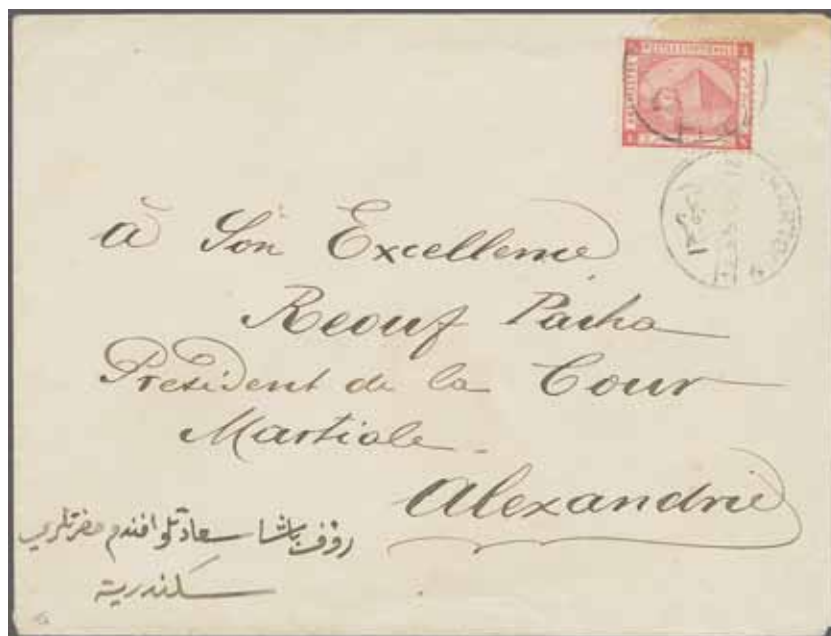 à Son Excellence
Reouf Pacha
President de la Cour
Martiale.
Alexandrie
رؤف باشا سعادتلو افندم حضرتلري
سكندرية